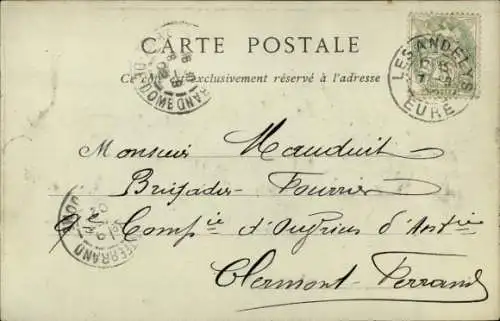 CARTE POSTALE
Ce côté est exclusivement réservé à l'adresse
LES ANDELYS
EURE
Monsieur Mauduit
Brigadier Fourrier
9e Compie d'Ouvriers d'Artie
Clermont-Ferrand